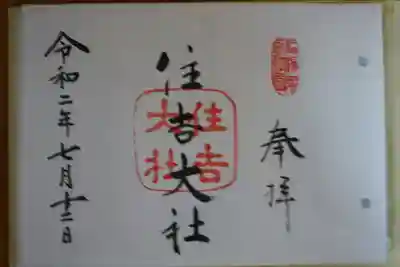 奉拝
住吉大社
住吉大社
令和二年七月十二日